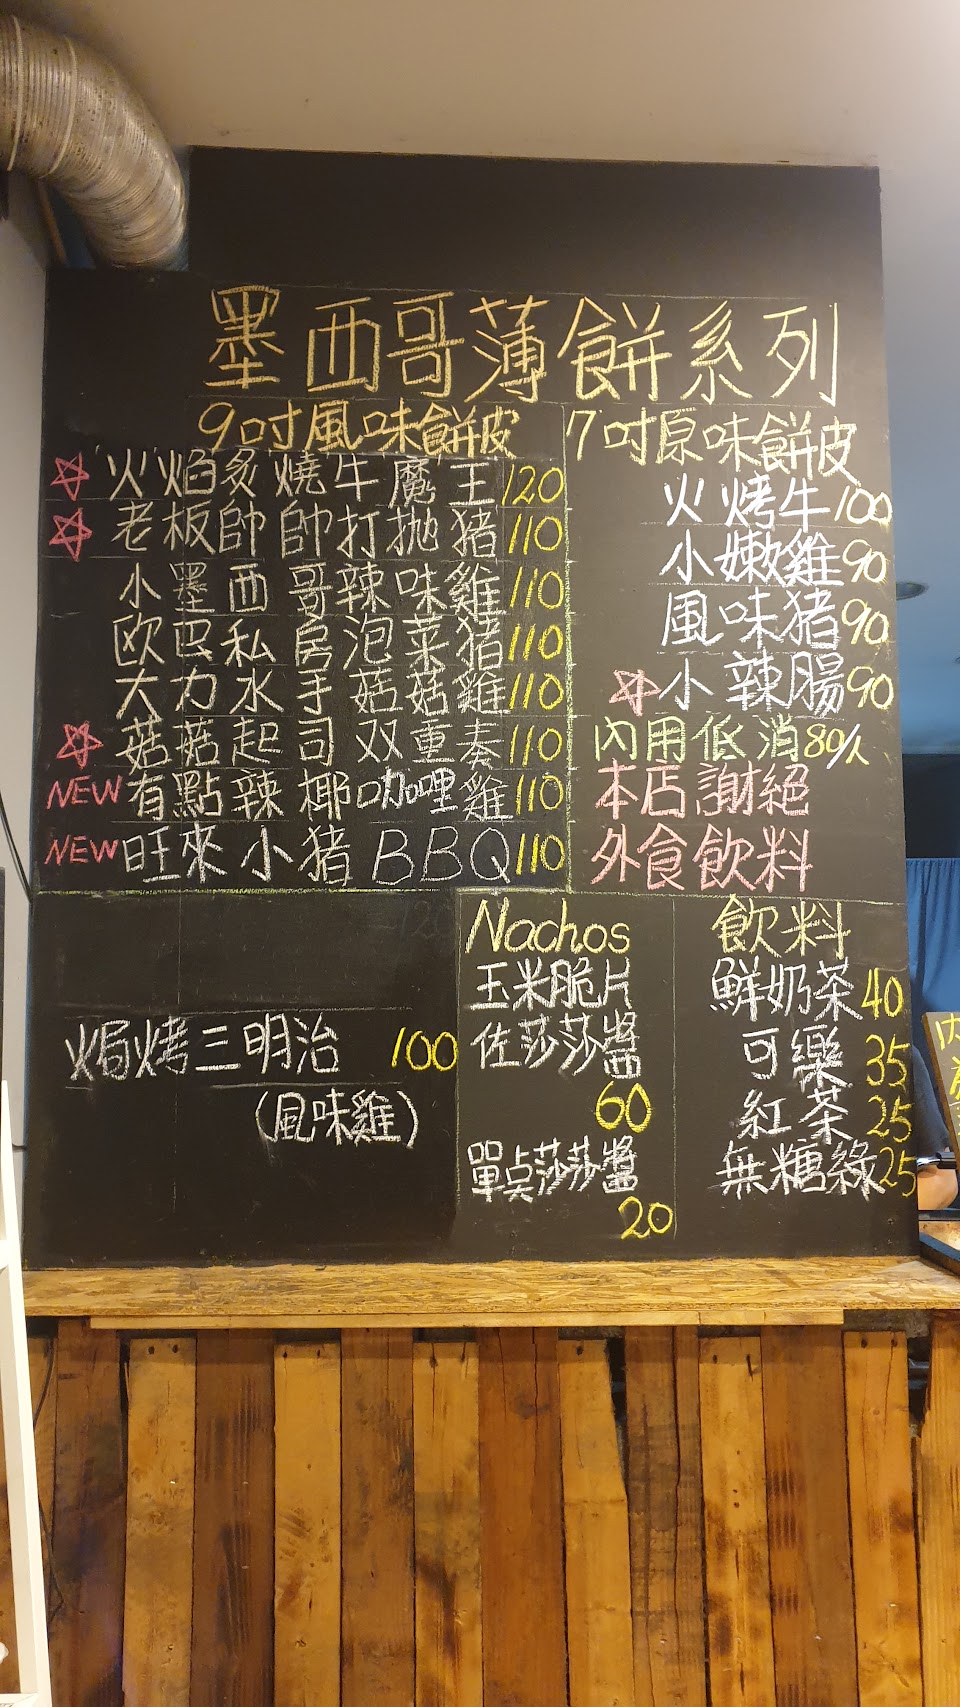 墨西哥薄餅系列
9吋風味餅皮
☆火焰炙燒牛魔王120
☆老板帥帥打拋豬110
小墨西哥辣味雞110
欧巴私房泡菜豬110
大力水手菇菇雞110
☆菇菇起司双重奏110
NEW有點辣椰咖哩雞110
NEW旺來小豬BBQ110
7吋原味餅皮
火烤牛100
小嫩雞90
風味豬90
☆小辣腸90
內用低消80/人
本店謝絕
外食飲料
焗烤三明治 100
(風味雞)
Nachos
玉米脆片
佐莎莎醬
60
單点莎莎醬
20
飲料
鮮奶茶40
可樂35
紅茶25
無糖綠25
內